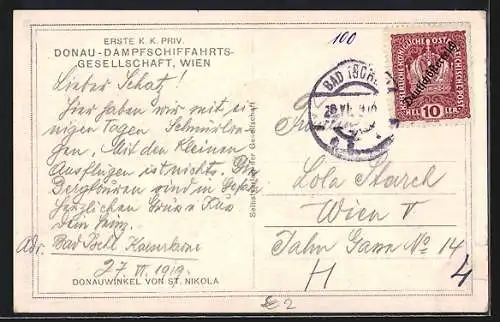 ERSTE K. K. PRIV.
DONAU-DAMPFSCHIFFAHRTS-
GESELLSCHAFT, WIEN
100
Lieber Schatz!
Hier haben wir mit ei-
nigen Tagen
Mit den kleinen
Ausflügen ist nichts. Die
sind in
Herzlichen Gruss u Kuss
Adr. Bad Ischl
27. VI. 1919.
DONAUWINKEL VON ST. NIKOLA
Selbstverlag der Gesellschaft
BAD ISCHL
KAISERLICHE KÖNIGLICHE ÖSTERREICHISCHE POST
Deutschösterreich
HELLER 10 HELLER
Frau
Lola Starch
Wien V
Jahn Gasse No 14
H
4
2